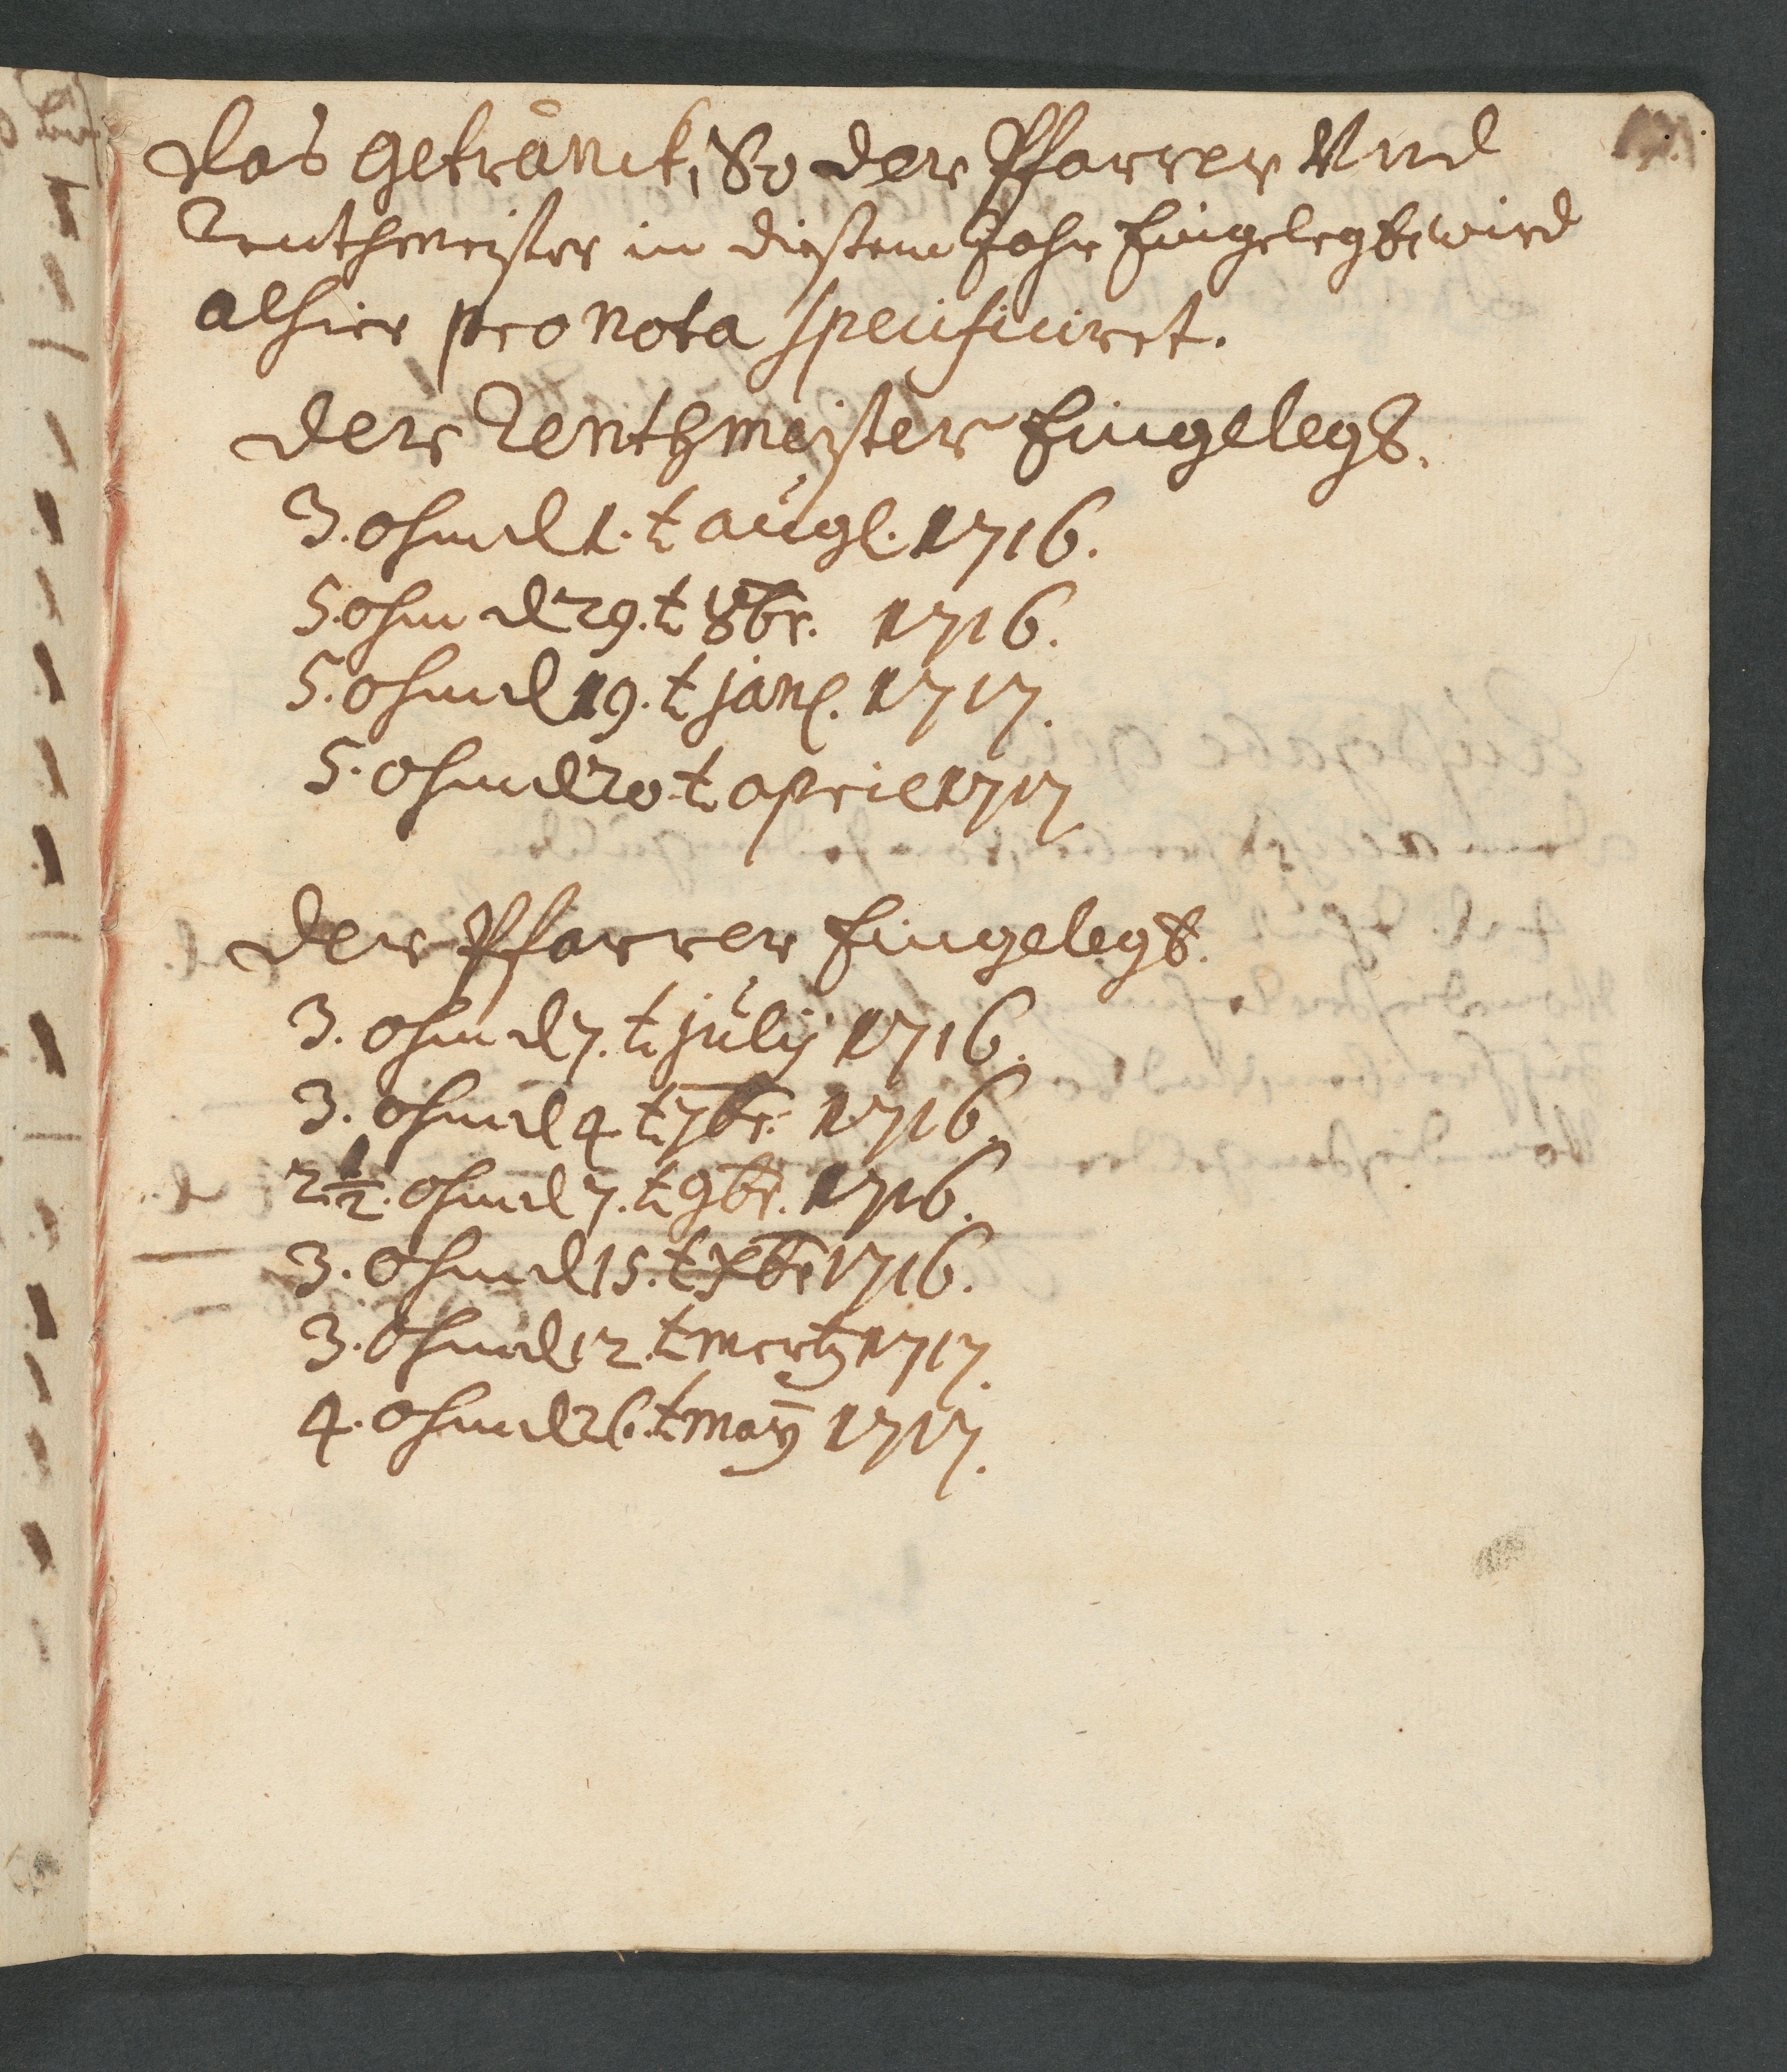 Das Getränck, So der Pfarrer Und
Renthmeister in diesem Jahr Eingelegt, wird
alhier pro nota specificiret.
Der Renthmeister Eingelegt.
3. ohm d 1. t augl. 1716.
5. ohm d 29. t 8br. 1716.
5. ohm d 19. t jan. 1717.
5. ohm d 20 t april 1717
Der Pfarrer Eingelegt.
3. ohm d 7. t julij 1716.
3. ohm d 4 t 7br. 1716.
2 1/2. ohm d 7. t 9br. 1716.
3. ohm d 15. t Xbr 1716.
3. ohm d 12. t mertz 1717.
4. ohm d 26. t may 1717.